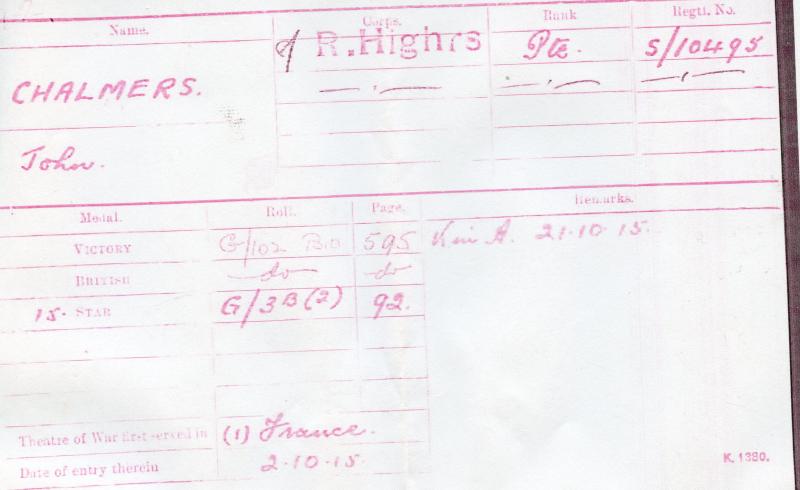 Name. Corps. Rank Regtl. No.
R. Highrs Pte. S/10495
CHALMERS. — „ — — „ — — „ —
John.
Medal. Roll. Page. Remarks.
VICTORY G/102 B10 595 K in A. 21.10.15.
BRITISH —do— —do—
15. STAR G/3B(2) 92.
Theatre of War first served in (1) France.
Date of entry therein 2.10.15
K. 1380.